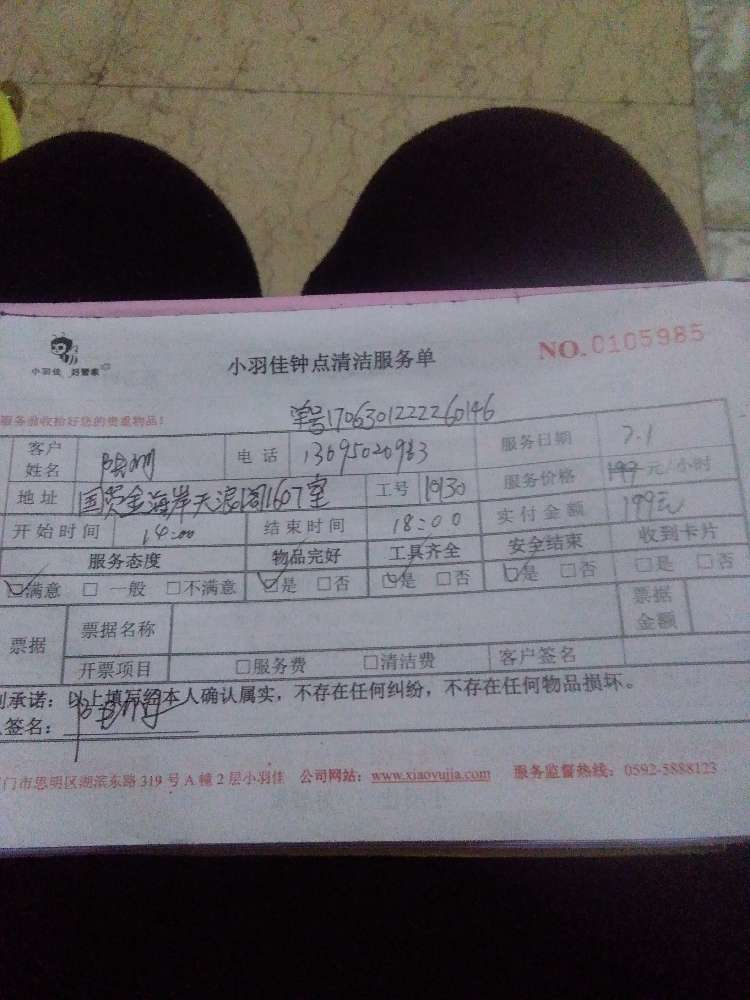 小羽佳 好管家
小羽佳钟点清洁服务单 NO.0105985
服务验收给好您的贵重物品!
单号170630122260146
客户姓名 电话 13695020983 服务日期 7.1
地址 国贸金海岸天浪阁1607室 工号 10130 服务价格 199元/小时
开始时间 14:00 结束时间 18:00 实付金额 199元
服务态度 物品完好 工具齐全 安全结束 收到卡片
☑满意 □一般 □不满意 ☑是 □否 ☑是 □否 ☑是 □否 □是 □否
票据 票据名称 票据金额
开票项目 □服务费 □清洁费 客户签名
承诺:以上填写经本人确认属实,不存在任何纠纷,不存在任何物品损坏。
签名:
门市思明区湖滨东路319号A幢2层小羽佳 公司网站:www.xiaoyujia.com 服务监督热线:0592-5888123